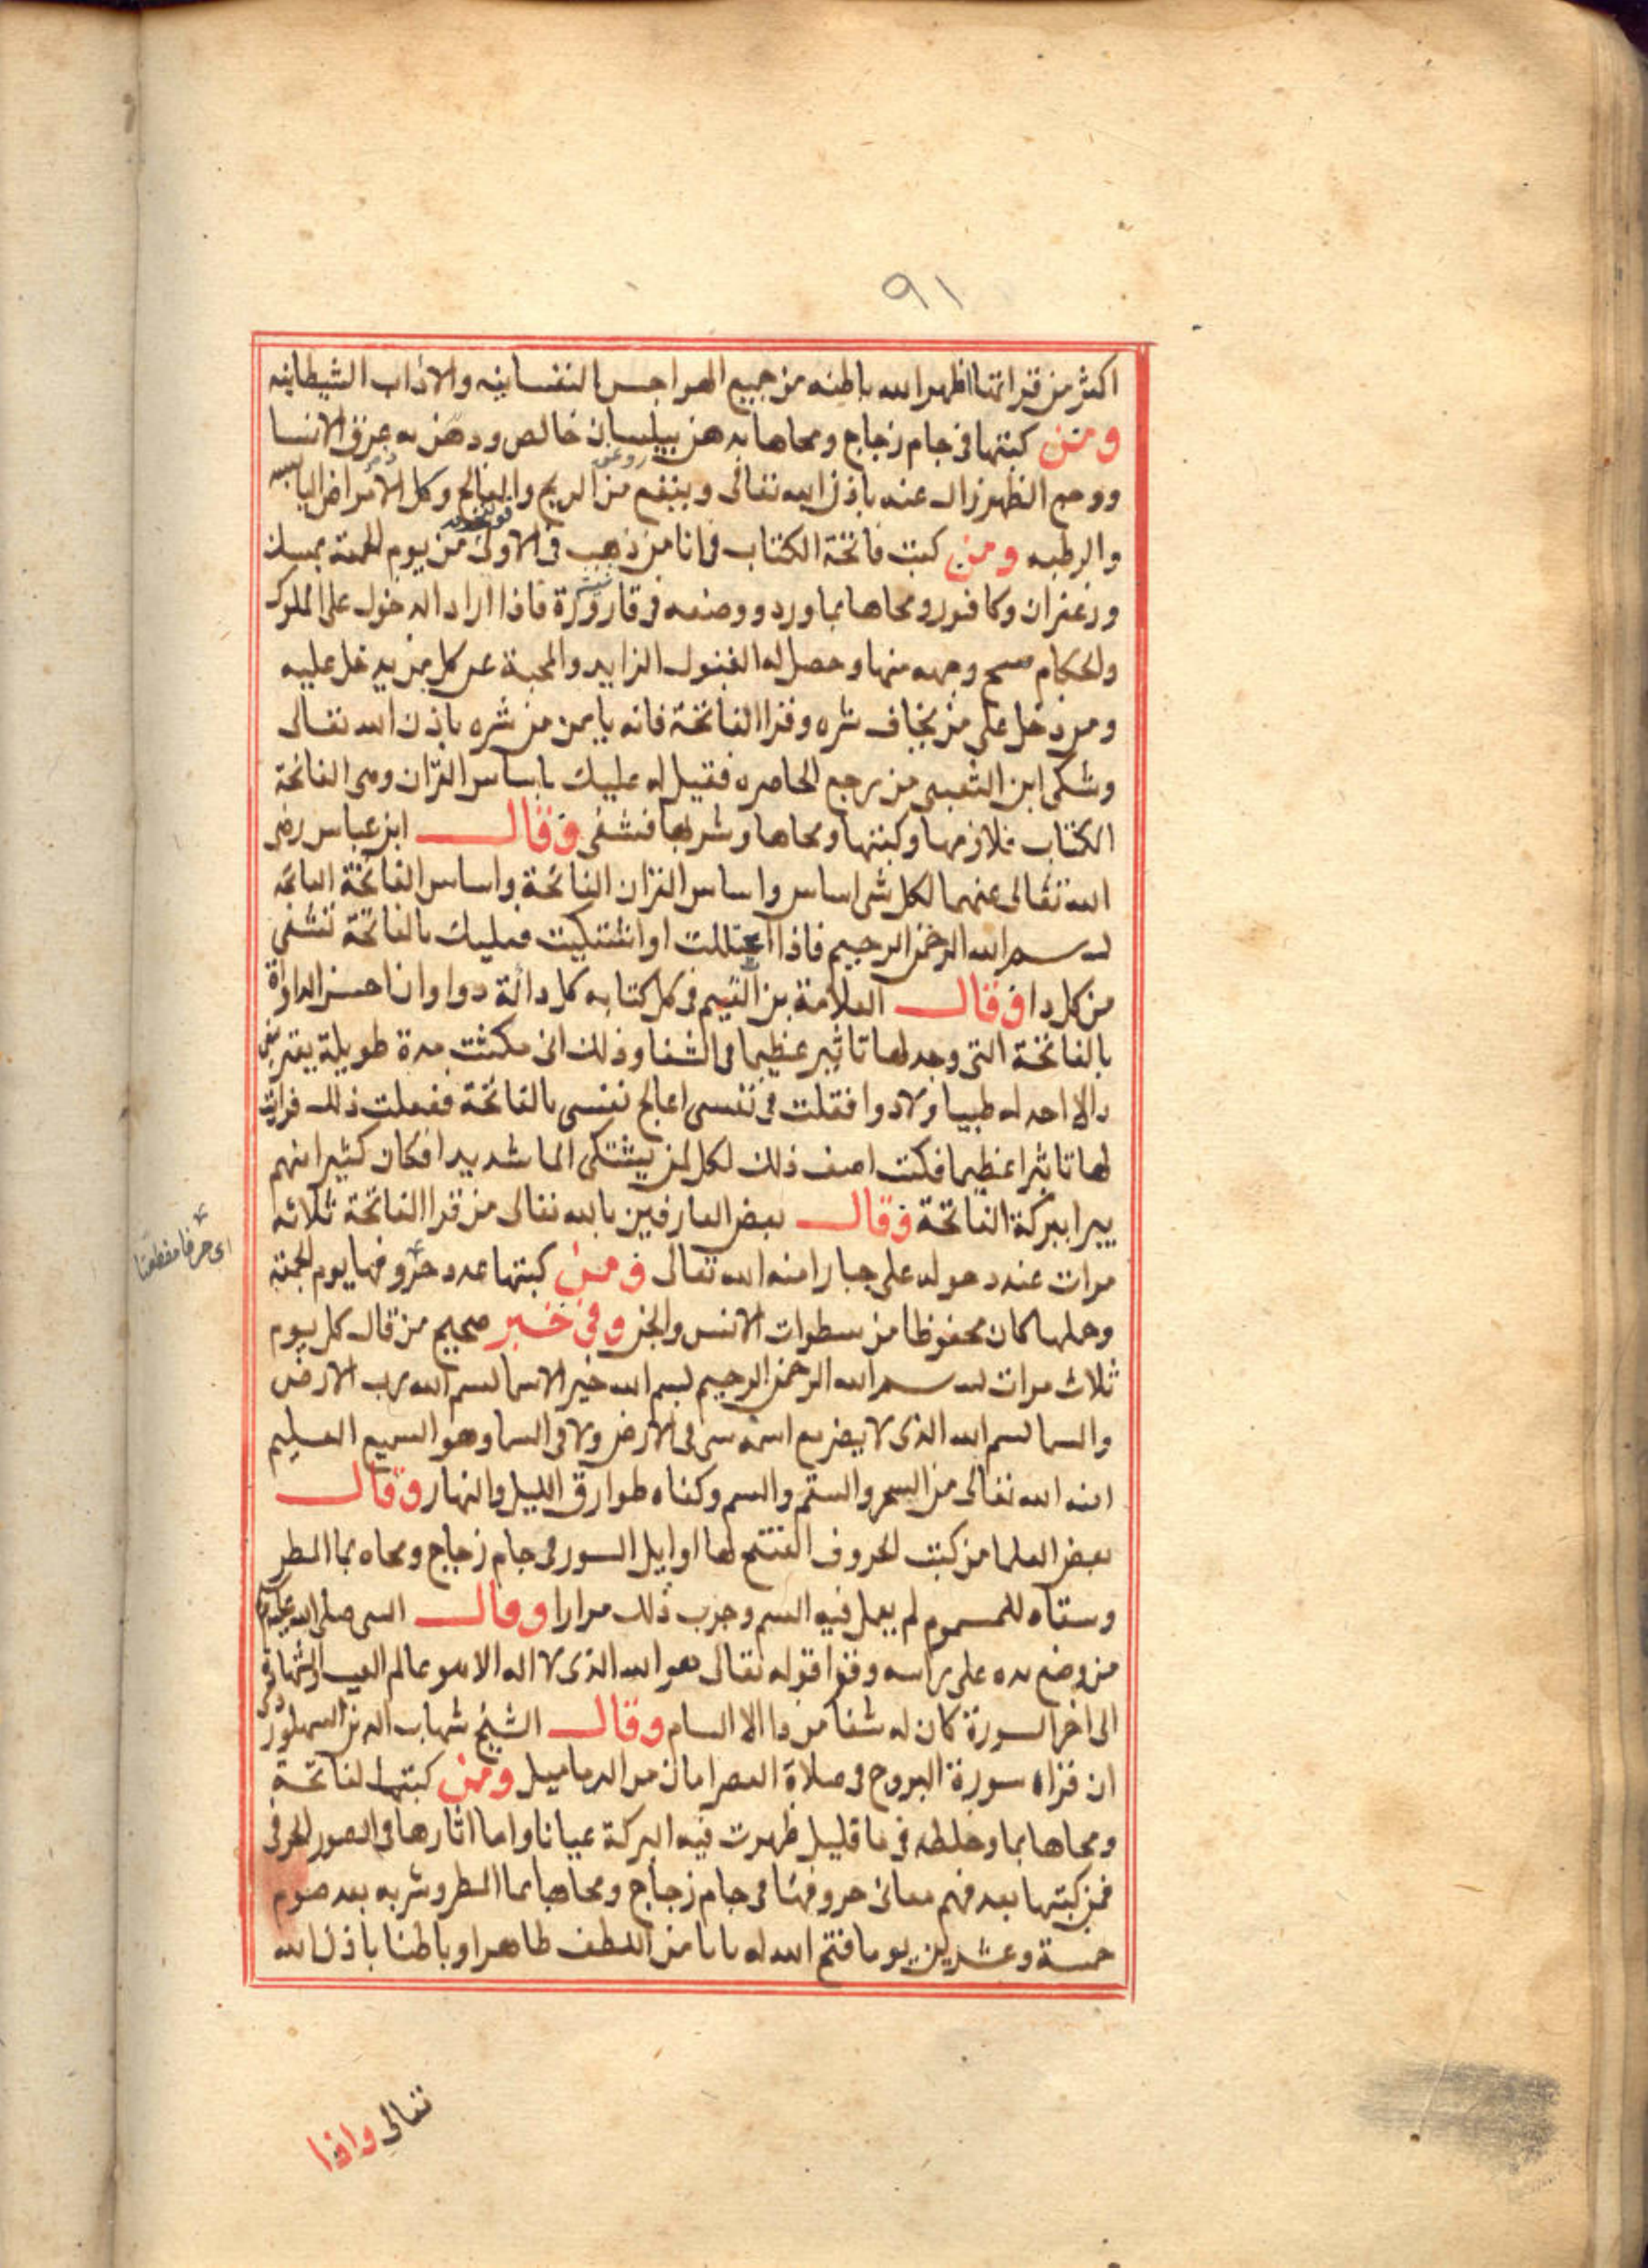 ٩١
اكثر من قرائتها اظهر الله باطنه من جميع الهواجس النفسانيه والاداب الشيطانيه
ومن كتبها فى جام زجاج ومحاها بدهن بيلسان خالص ودهن به عرق الانسا
ووجع الظهر زال عنه باذن الله تعالى وينفع من الريح والفالج وكل الامراض اليابسه
والرطبه ومن كتب فاتحة الكتاب فى انا من ذهب فى الاولى من يوم الجمعة بمسك
وزعفران وكافور ومحاها بماورد ووضعه فى قارورة فاذا اراد الدخول على الملوك
والحكام مسح وجهه منها وحصل له القبول الزايد والمحبة عند كل من يدخل عليه
ومن دخل على من يخاف شره وقرا الفاتحة فانه يا من من شره باذن الله تعالى
وشكى ابن الشعبى من وجع الحاصره فقيل له عليك باساس القران وهى الفاتحة
الكتاب فلازمها وكتبها ومحاها وشربها فشفى وقال ابن عباس رضى
الله تعالى عنهما لكل شى اساس واساس القران الفاتحة واساس الفاتحة الفاتحه
بسم الله الرحمن الرحيم فاذا اعتللت او اشتكيت فعليك بالفاتحة تشفى
من كل دا وقال العلامة بن القيم فى كل كتابه كل دائة دوا وانا احسن المداواة
بالفاتحة التى وجد لها تاثير عظيما فى الشفا وذلك انى مكثت مدة طويلة يعترينى
دا لا اجد له طبيبا ولا دوا فقلت فى نفسى اعالج نفسى بالفاتحة ففعلت ذلك فرايت
لها تاثيرا عظيما فكنت اصف ذلك لكل لمن يشتكى الما شديدا فكان كثيرا منهم
يبرا ببركة الفاتحة وقال بعض العارفين بالله تعالى من قرا الفاتحة ثلاثه
مرات عند دخوله على جبار امنه الله تعالى ومن كتبها عدد حروفها يوم الجمعة
وحملها كان محفوظا من سطوات الانس والجن وفى خبر صحيح من قال كل يوم
ثلاث مرات بسم الله الرحمن الرحيم بسم الله خير الاسما بسم الله رب الارض
والسما بسم الله الذى لا يضر مع اسمه شى فى الارض ولا فى السما وهو السميع العليم
امنه الله تعالى من السحر والسقم والسم وكفاه طوارق الليل والنهار وقال
بعض العلما من كتب الحروف المفتتح لها اوايل السور فى جام زجاج ومحاه بما المطر
وسقاه للمسموم لم يعمل فيه السم وجرب ذلك مرارا وقال النبى صلى الله عليه وسلم
من وضع يده على راسه وقرا قوله تعالى هو الله الذى لا اله الا هو عالم الغيب والشهادة
الى اخر السورة كان له شفا من دا الا السام وقال الشيخ شهاب الدين السهروردى
ان قراة سورة البروج فى صلاة العصر امان من الدماميل ومن كتبها لفاتحة
ومحاها بما وخلطه فى ما قليل ظهرت فيه البركة عيانا واما اثارها فى الصور الحرفى
فمن كتبها بعد فهم معانى حروفها فى جام زجاج ومحاها بما المطر وشربه بعد صوم
خمسة وعشرين يوما فتح الله له بابا من اللطف ظاهرا وباطنا باذن الله
اى حرفا مقطعتا
تعالى واذا